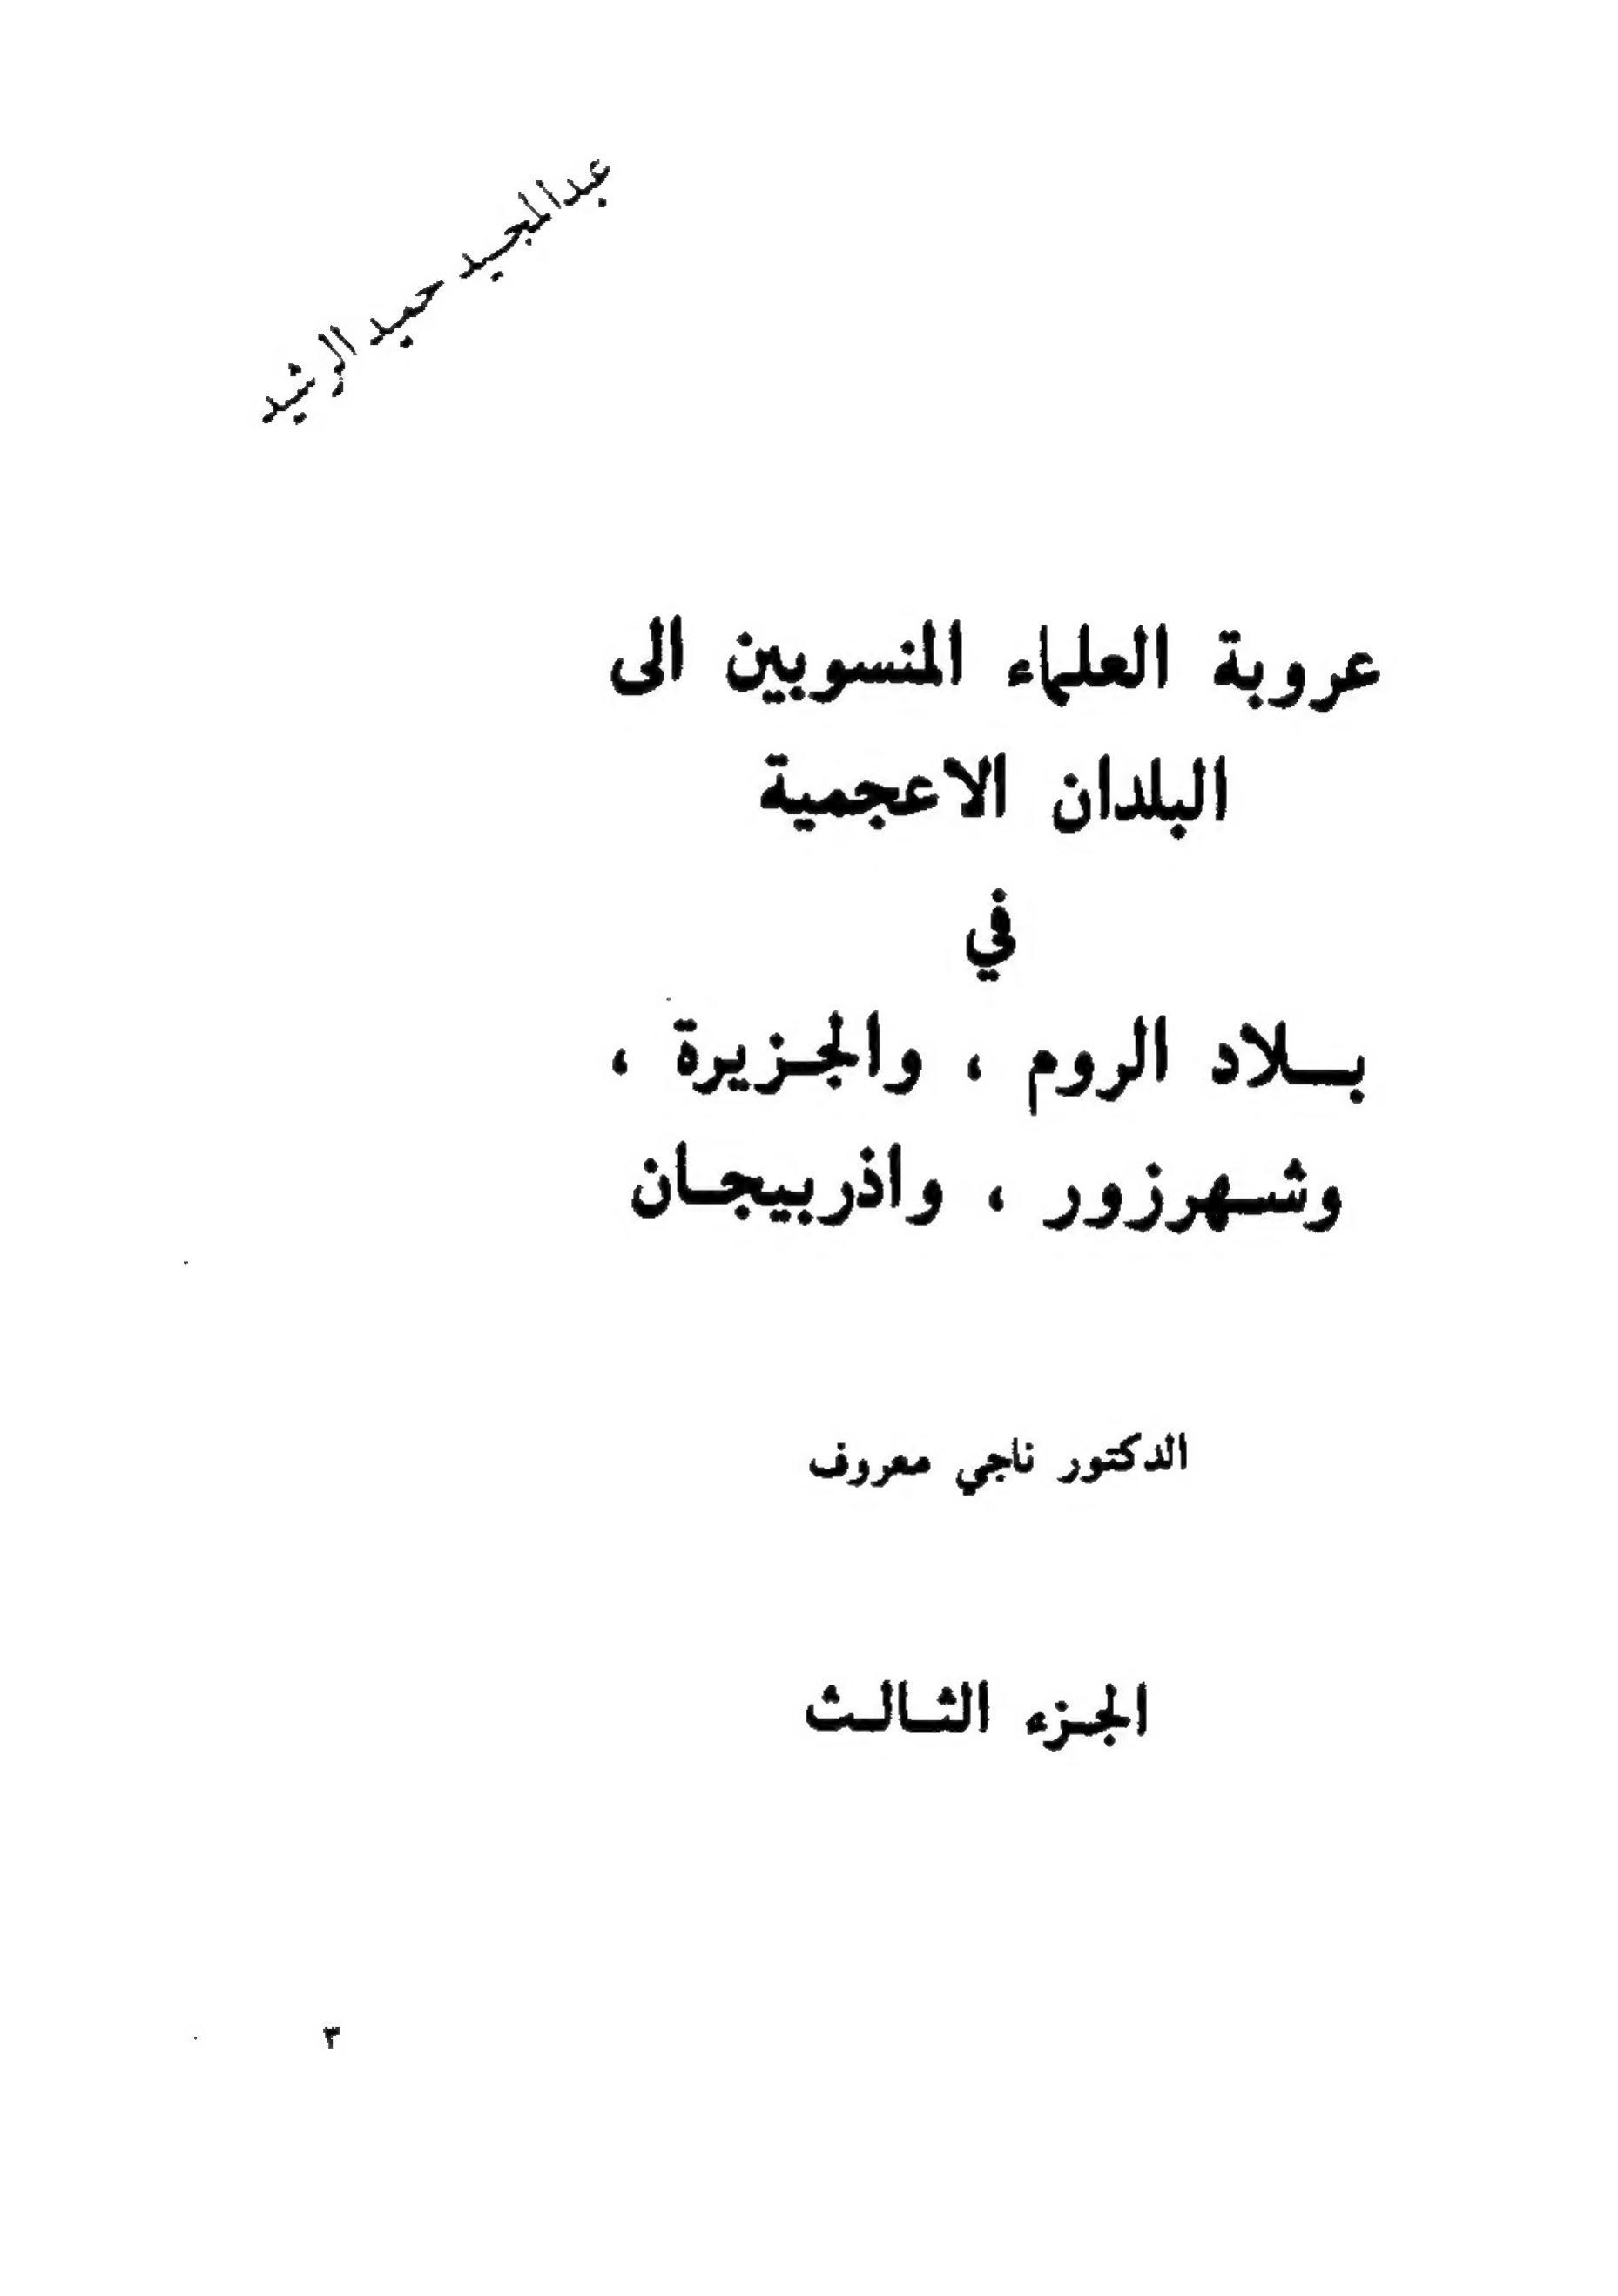 عبدالمجيد حميد الرشيد
عروبة العلماء المنسوبين الى
البلدان الاعجمية
في
بـلاد الروم ، والجـزيرة ،
وشـهرزور ، واذربيجـان
الدكتور ناجي معروف
الجـزء الثـالـث
٣